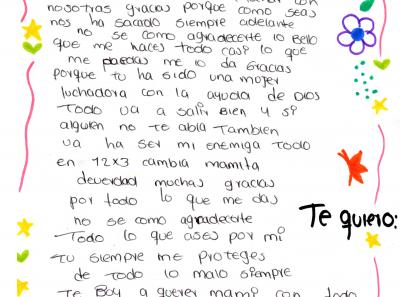 nosotras gracias porque como seas
nos ha sacado siempre adelante
no se como agradecerte lo Bello
que me haces todo casi lo que
me puedas me lo da Gracias
porque tu ha sido una mujer
luchadora con la ayuda de Dios
Todo va a salir bien y si
alguien no te abla Tambien
va ha ser mi enemiga todo
en 12x3 cambia mamita
deverdad muchas gracias
por todo lo que me das
no se como agradecerte
Todo lo que ases por mi
Te quiero:
Tu siempre me proteges
de todo lo malo siempre
Te Boy a querer mami con todo